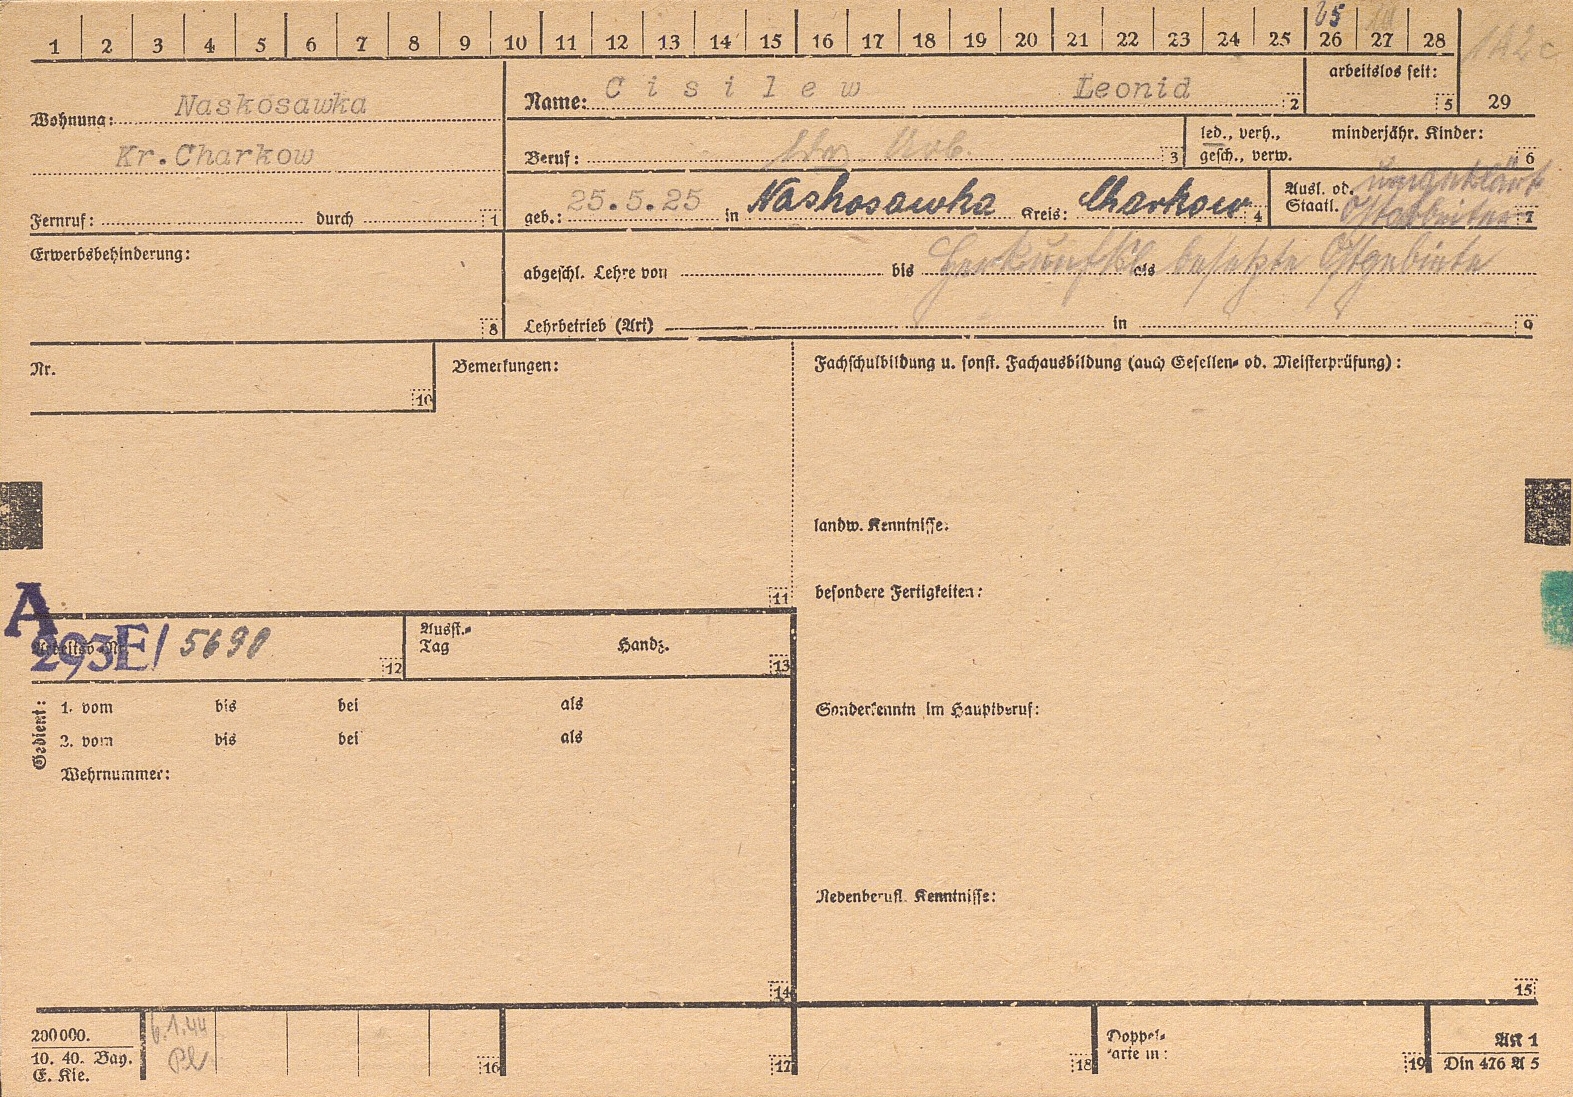 1 2 3 4 5 6 7 8 9 10 11 12 13 14 15 16 17 18 19 20 21 22 23 24 25 26 27 28
25
1A2c
Wohnung: Naskosawka
Kr. Charkow
Fernruf: durch 1
Name: C i s i l e w Leonid 2
arbeitslos seit: 5
29
Beruf: Arb. 3
led., verh., gesch., verw.
minderjähr. Kinder: 6
geb.: 25.5.25 in Naskosawka Kreis: Charkow 4
Ausl. od. Staatl. ungeklärt
Ostarbeiter 7
Erwerbsbehinderung:
8
abgeschl. Lehre von bis als
Herkunftsl. besetzte Ostgebiete
Lehrbetrieb (Art) in 9
Nr.
10
Bemerkungen:
11
Fachschulbildung u. sonst. Fachausbildung (auch Gesellen- od. Meisterprüfung):
landw. Kenntnisse:
besondere Fertigkeiten:
Sonderkenntn im Hauptberuf:
Nebenberufl. Kenntnisse:
15
A
Arbeitsb.-Nr.
293E/ 5690
12
Ausst.-
Tag Handz.
13
Gedient:
1. vom bis bei als
2. vom bis bei als
Wehrnummer:
14
200000.
10. 40. Bay.
E. Kie.
6.1.44
Pl
16
17
18
Doppel-
karte in:
19
AK 1
Din 476 A 5